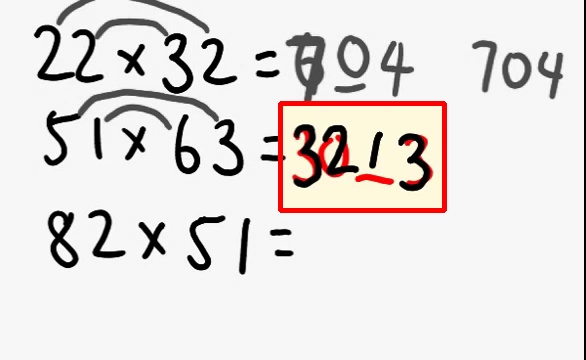 22×32=704 704
51×63=3213
82×51=